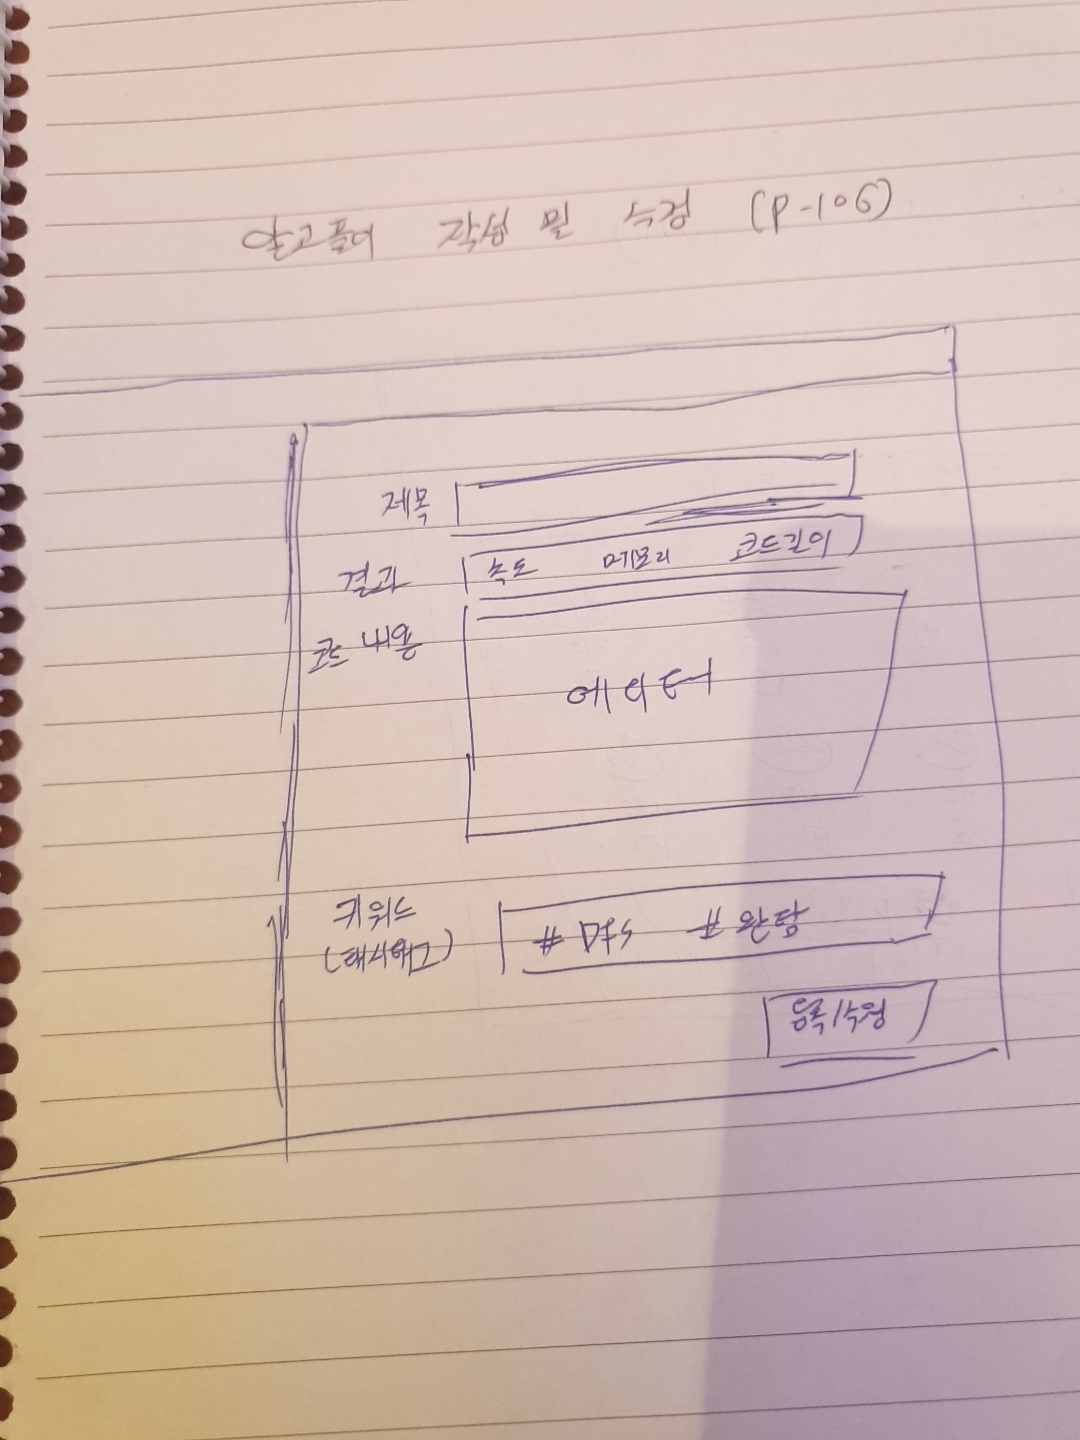 알고풀이 작성 및 수정 (P-106)
제목
결과 속도 메모리 코드길이
코드 내용
에디터
키워드 # DFS # 완탐
(해시태그)
등록/수정